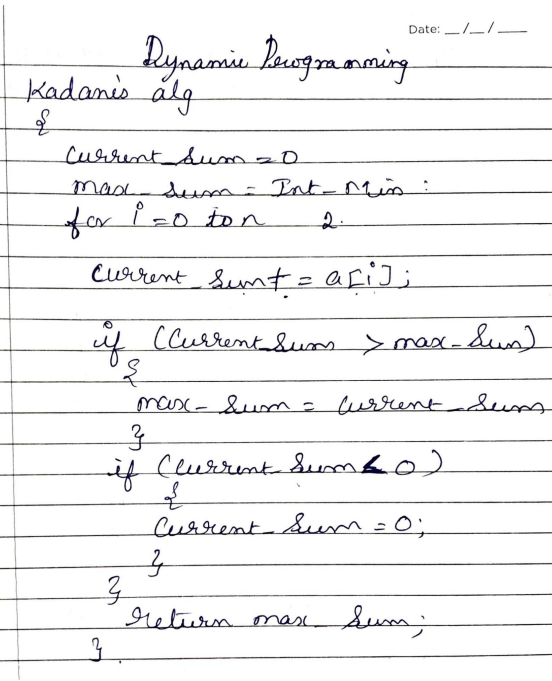 Date: __/__/__
Dynamic Programming
Kadanis alg
{
Current_Sum = 0
max_sum = Int_Min :
for i=0 to n {
Current_Sum += a[i];
if (Current_Sum > max_Sum)
{
max_Sum = Current_Sum
}
if (Current_Sum < 0)
{
Current_Sum = 0;
}
}
return max_Sum;
}